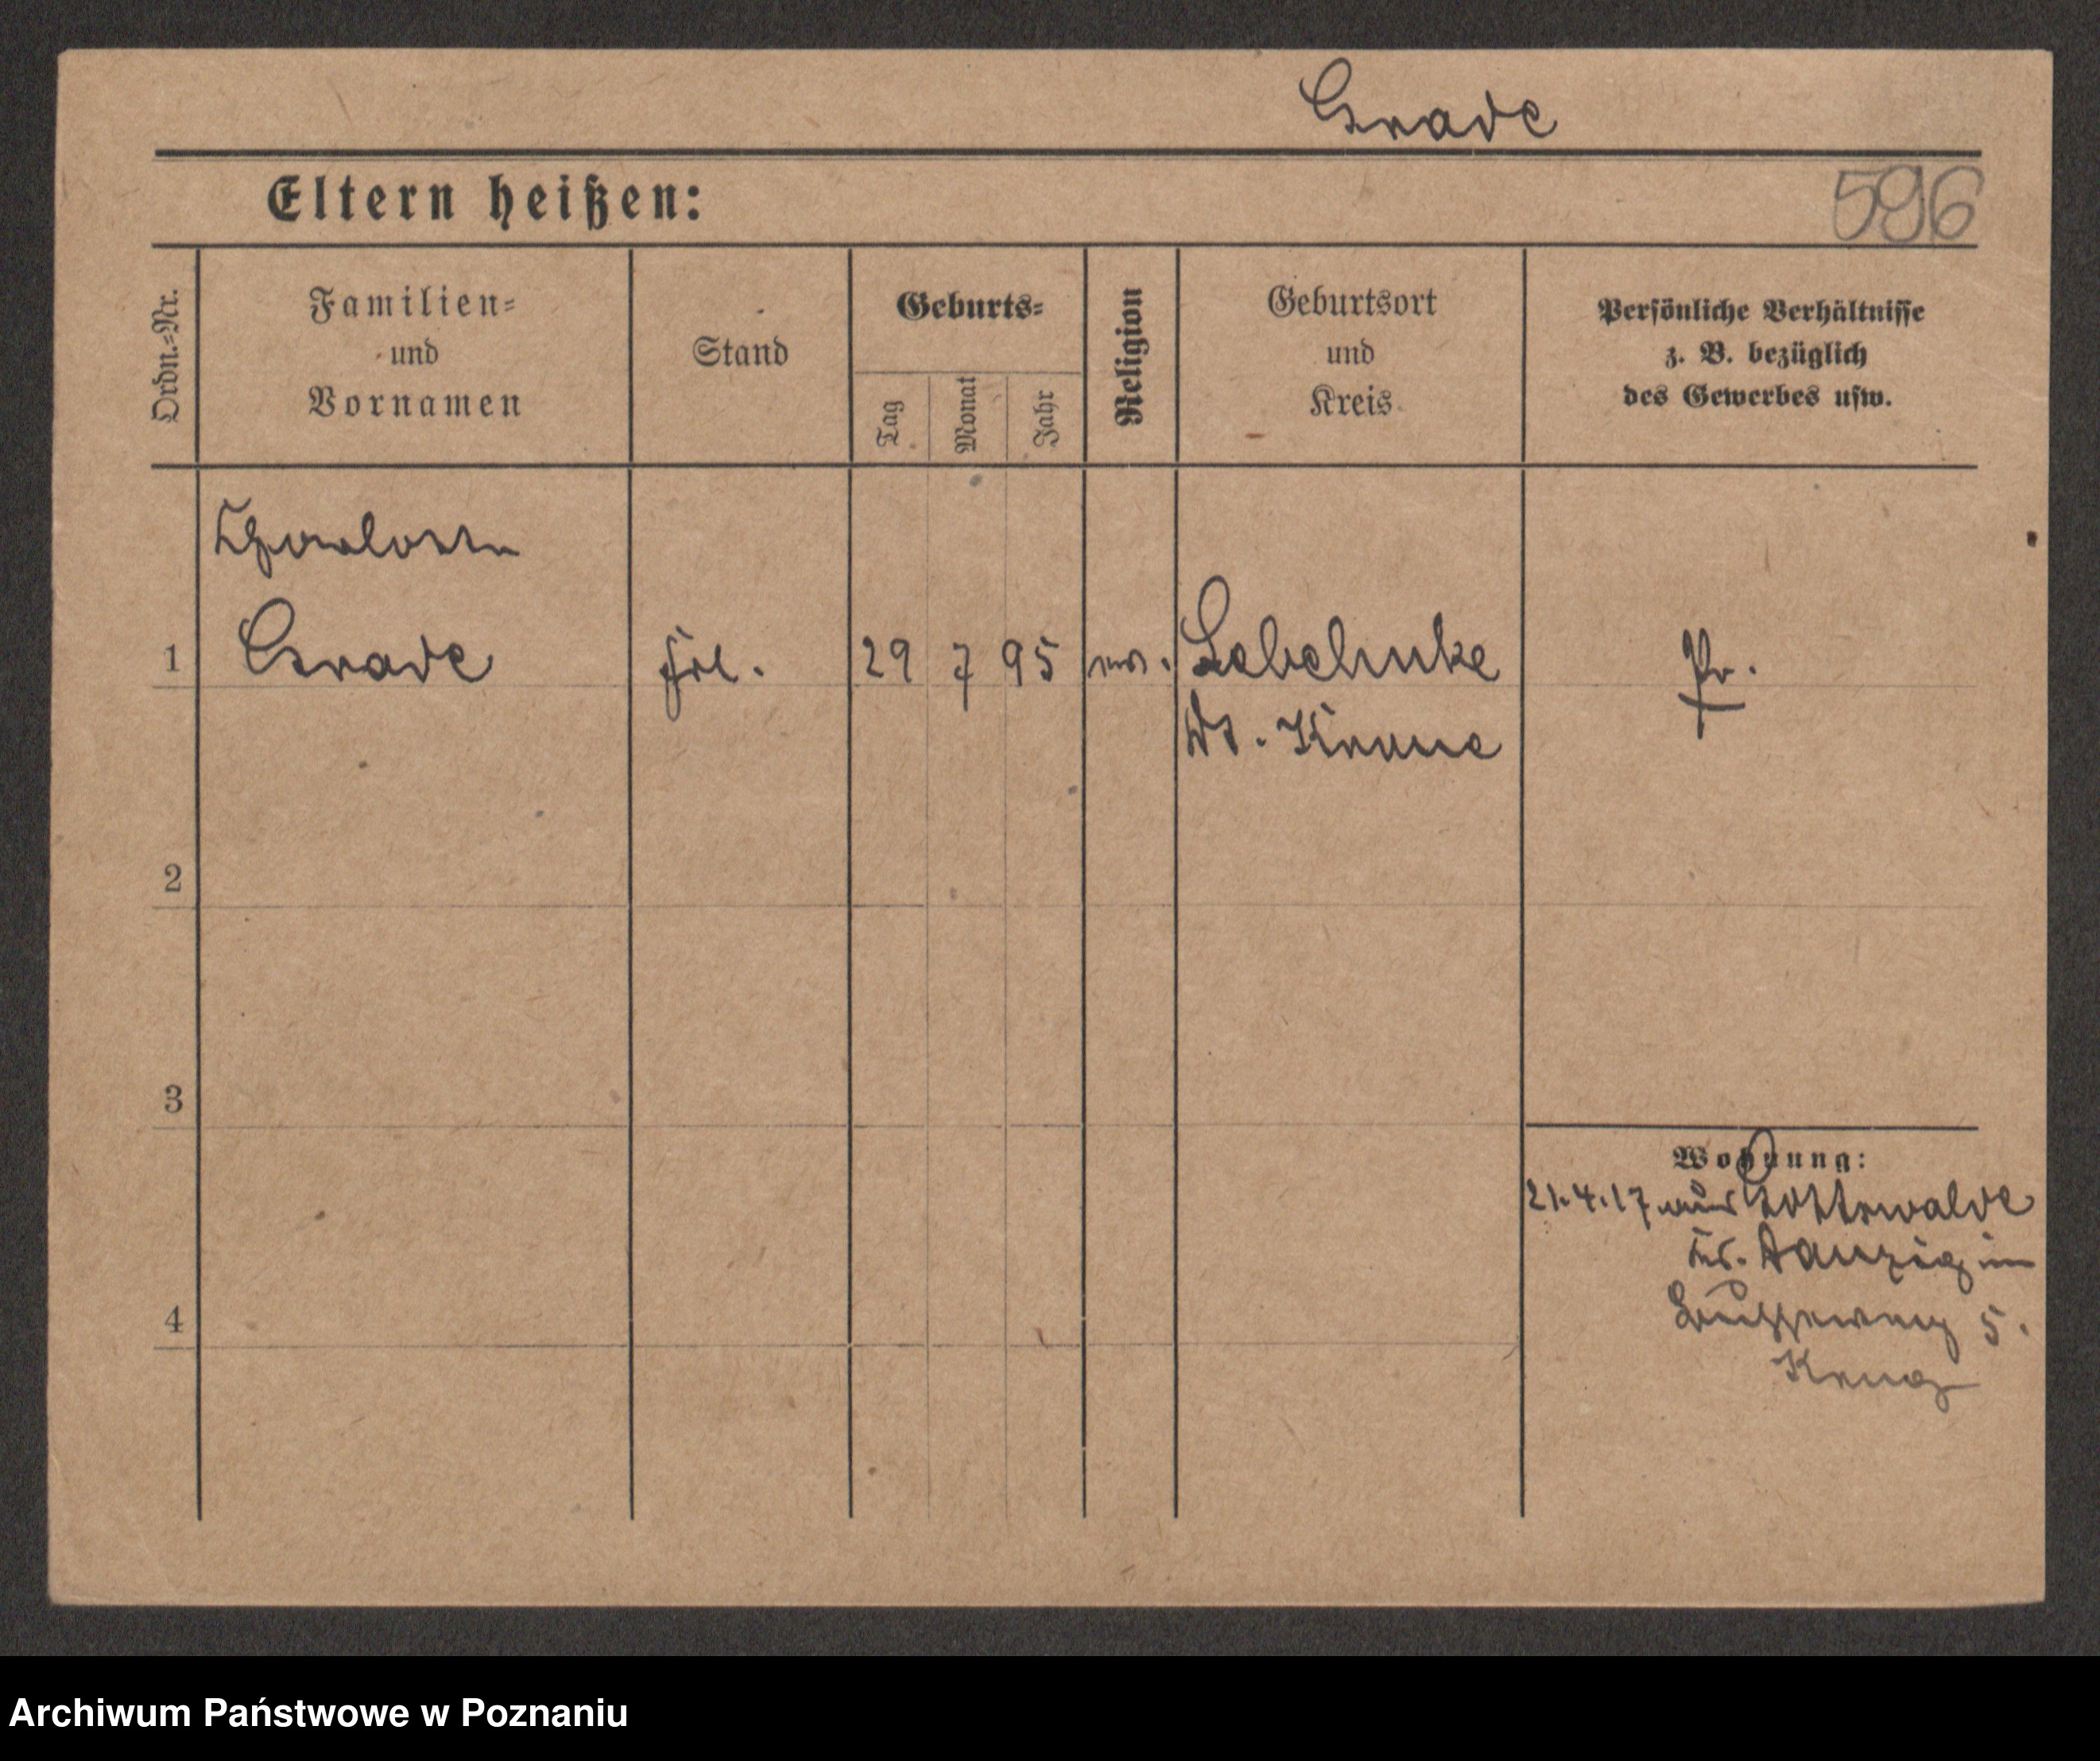 Grade
Eltern heißen:
596
Ordn.=Nr.
Familien=
und
Vornamen
Stand
Geburts=
Tag
Monat
Jahr
Religion
Geburtsort
und
Kreis
Persönliche Verhältnisse
z. B. bezüglich
des Gewerbes usw.
1 Grade Frl. 29 7 95 Lebehnke Pr.
Dt. Krone
2
3
4
Wohnung:
21.4.17 aus Gottswalde
Kr. Danzig in
5.
Krug
Archiwum Państwowe w Poznaniu